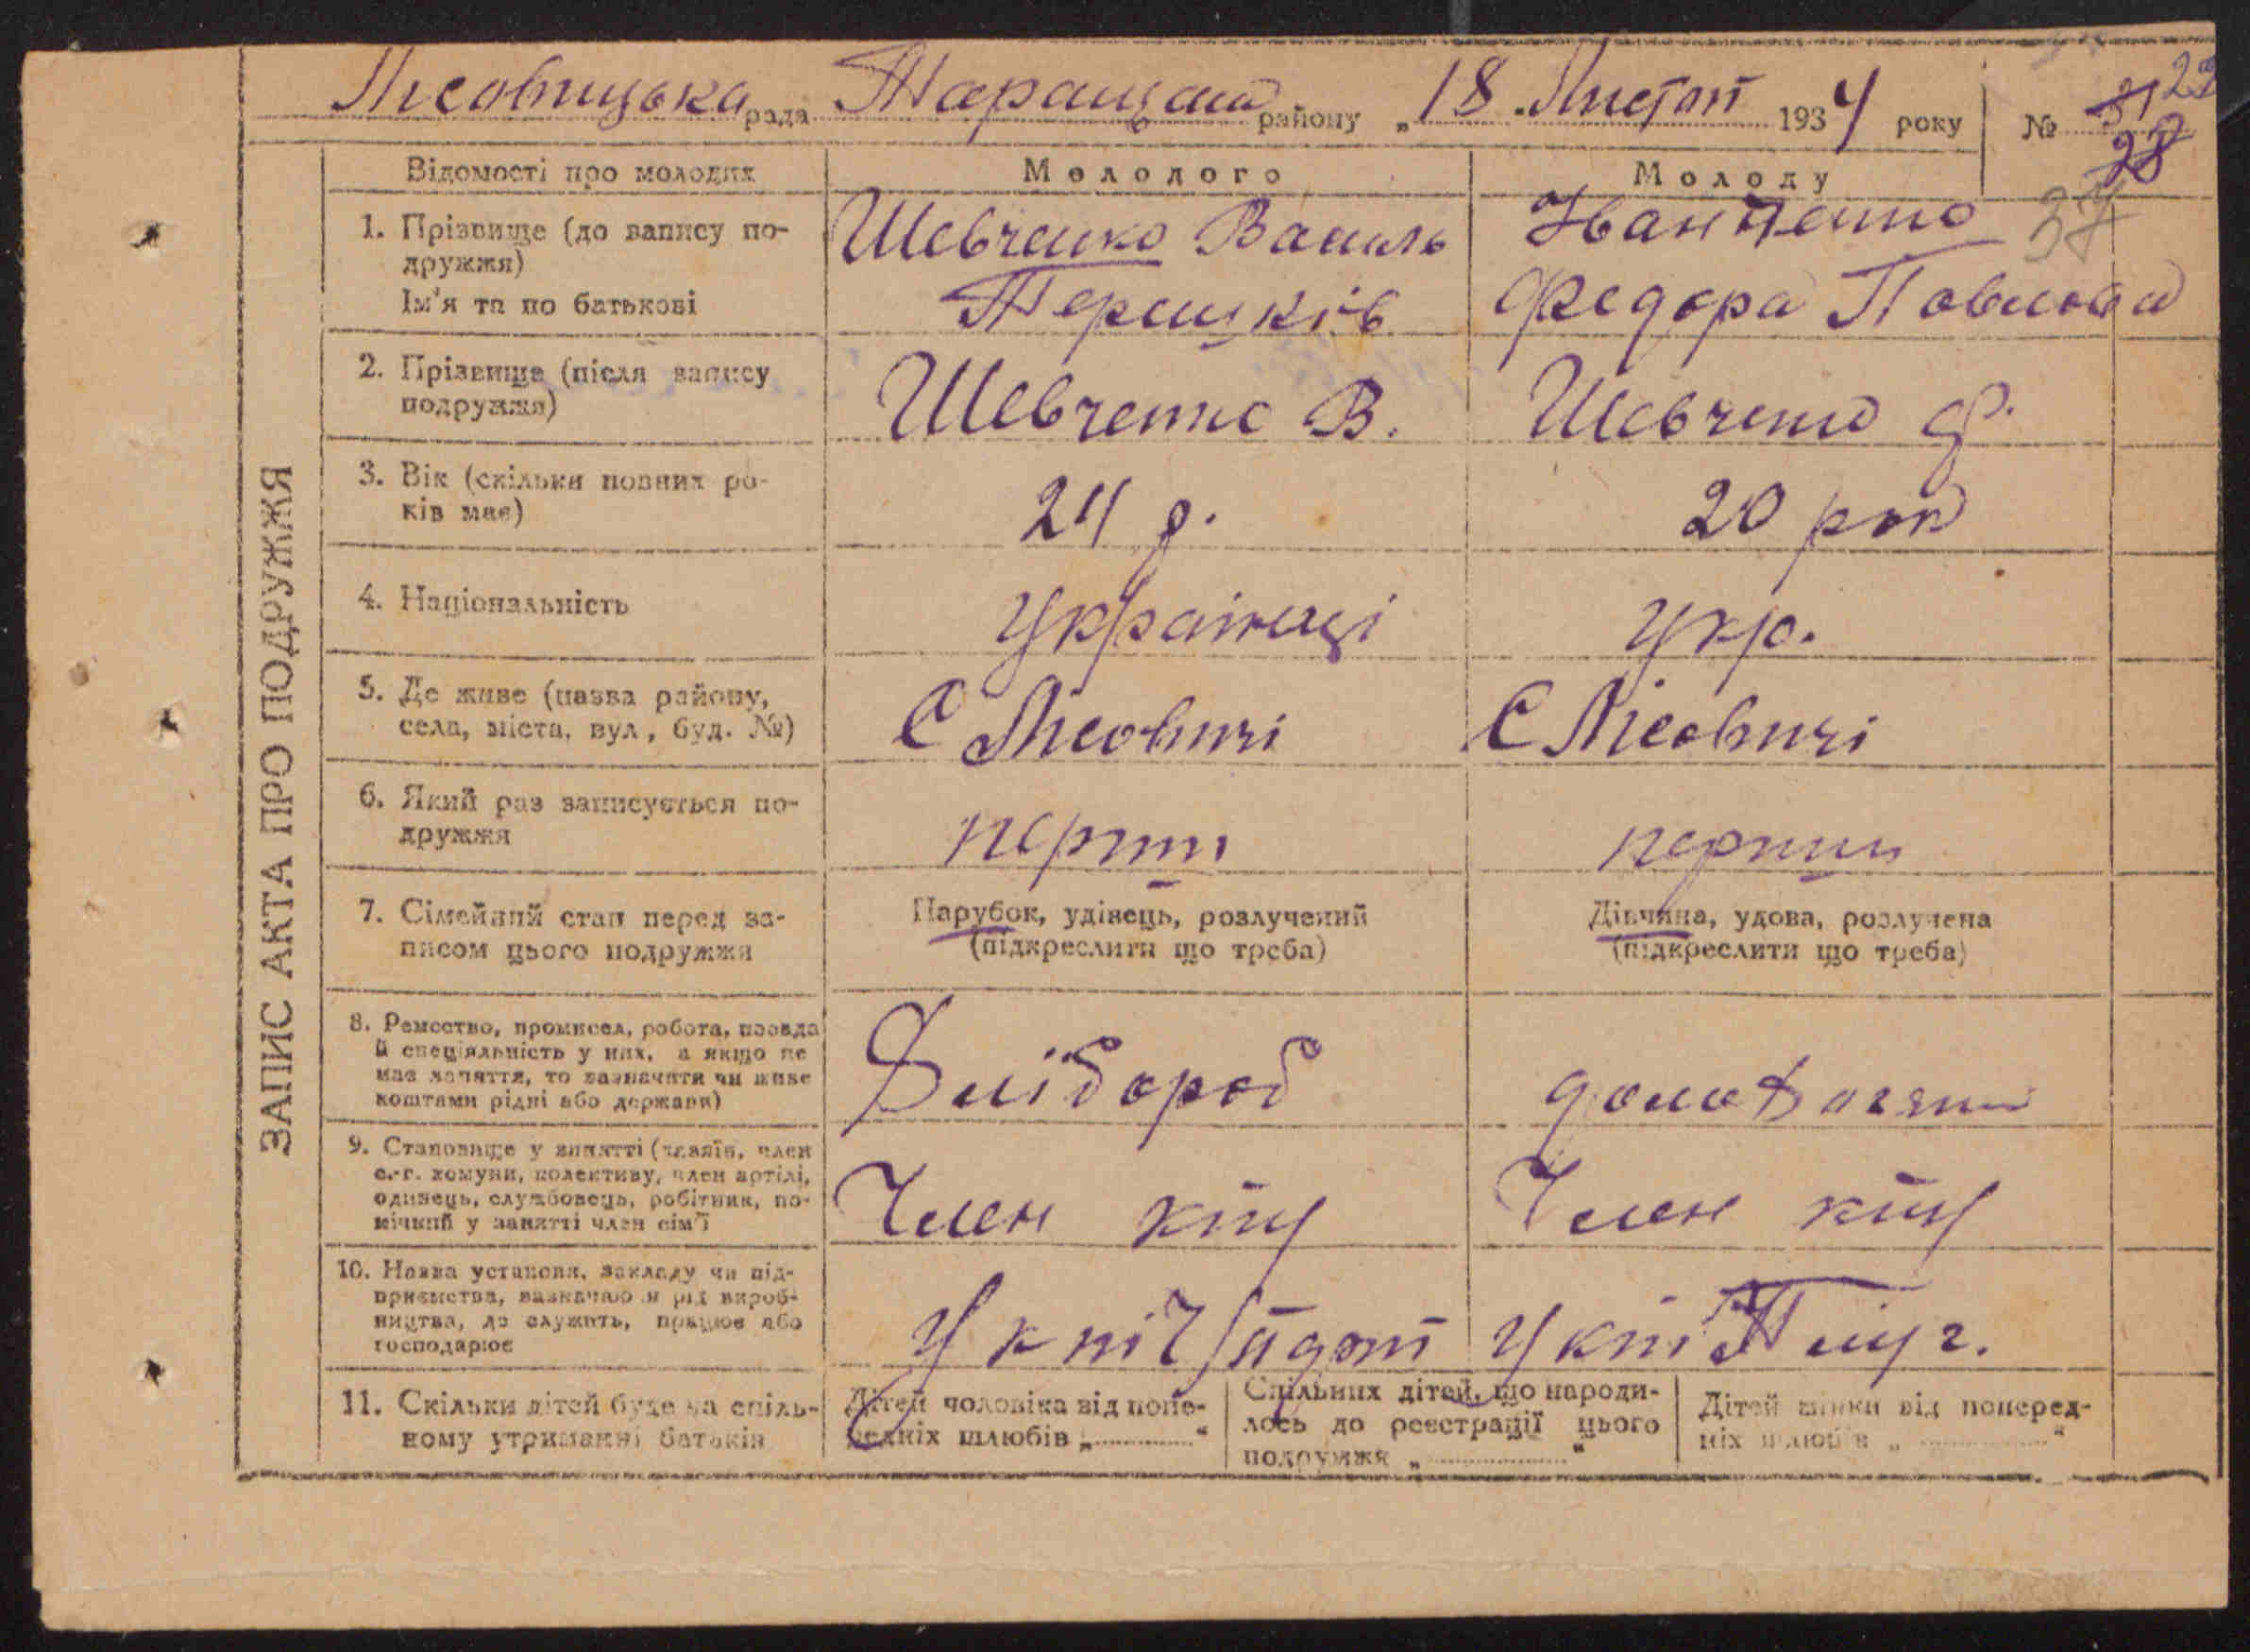 Лісовицька рада Таращан району „18 „ Листоп 1934 року № 31 29
28
37
ЗАПИС АКТА ПРО ПОДРУЖЖЯ
Відомості про молодих Молодого Молоду
1. Прізвище (до запису по- Шевченко Василь Іванченко
дружжя)
Ім'я та по батькові Терешків Федора Павлова
2. Прізвище (після запису Шевченко В. Шевченко Ф.
подружжя)
3. Вік (скільки повних ро- 24 р. 20 рок
ків має)
4. Національність Українці Укр.
5. Де живе (назва району, С Лісовичі С Лісовичі
села, міста, вул, буд. №)
6. Який раз записується по- перший перший
дружжя
7. Сімейний стан перед за- Парубок, удівець, розлучений Дівчина, удова, розлучена
писом цього подружжя (підкреслити що треба) (підкреслити що треба)
8. Ремество, промисел, робота, посада
й спеціяльність у них, а якщо не
має заняття, то зазначити чи живе
коштами рідні або держави)
Хлібороб
9. Становище у занятті (хазяїн, член
с.-г. комуни, колективу, член артілі,
одинець, службовець, робітник, по-
мічний у занятті член сім'ї
Член кгу Член кгу
10. Назва установи, закладу чи під-
приємства, зазначаючи рід вироб-
ництва, де служить, працює або
господарює
11. Скільки дітей буде на спіль-
ному утриманні батьків
Дітей чоловіка від попе-
редніх шлюбів „ “
Спільних дітей, що народи-
лось до реєстрації цього
подружжя „ “
Дітей жінки від поперед-
ніх шлюбів „ “